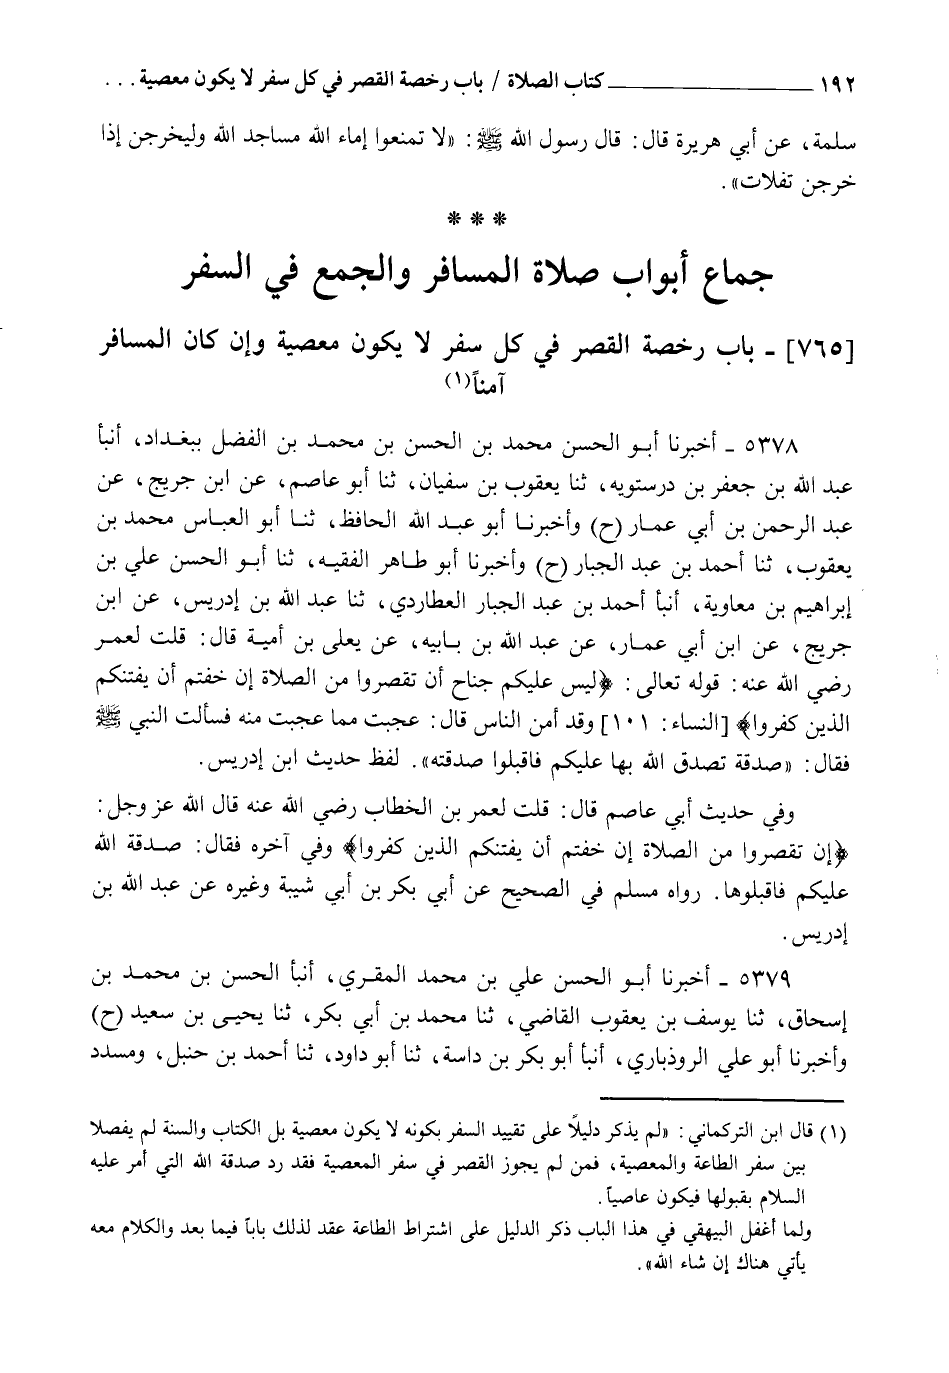 ١٩٢ ــــــــــ كتاب الصلاة / باب رخصة القصر في كل سفر لا يكون معصية . . .
سلمة، عن أبي هريرة قال: قال رسول الله ﷺ: «لا تمنعوا إماء الله مساجد الله وليخرجن إذا
خرجن تفلات».
* * *
جماع أبواب صلاة المسافر والجمع في السفر
[٧٦٥] - باب رخصة القصر في كل سفر لا يكون معصية وإن كان المسافر
آمناً(١)
٥٣٧٨ - أخبرنا أبو الحسن محمد بن الحسن بن محمد بن الفضل ببغداد، أنبأ
عبد الله بن جعفر بن درستويه، ثنا يعقوب بن سفيان، ثنا أبو عاصم، عن ابن جريج، عن
عبد الرحمن بن أبي عمار (ح) وأخبرنا أبو عبد الله الحافظ، ثنا أبو العباس محمد بن
يعقوب، ثنا أحمد بن عبد الجبار (ح) وأخبرنا أبو طاهر الفقيه، ثنا أبو الحسن علي بن
إبراهيم بن معاوية، أنبأ أحمد بن عبد الجبار العطاردي، ثنا عبد الله بن إدريس، عن ابن
جريج، عن ابن أبي عمار، عن عبد الله بن بابيه، عن يعلى بن أمية قال: قلت لعمر
رضي الله عنه: قوله تعالى: ﴿ليس عليكم جناح أن تقصروا من الصلاة إن خفتم أن يفتنكم
الذين كفروا﴾ [النساء: ١٠١] وقد أمن الناس قال: عجبت مما عجبت منه فسألت النبي ﷺ
فقال: «صدقة تصدق الله بها عليكم فاقبلوا صدقته». لفظ حديث ابن إدريس.
وفي حديث أبي عاصم قال: قلت لعمر بن الخطاب رضي الله عنه قال الله عز وجل:
﴿إن تقصروا من الصلاة إن خفتم أن يفتنكم الذين كفروا﴾ وفي آخره فقال: صدقة الله
عليكم فاقبلوها. رواه مسلم في الصحيح عن أبي بكر بن أبي شيبة وغيره عن عبد الله بن
إدريس.
٥٣٧٩ - أخبرنا أبو الحسن علي بن محمد المقري، أنبأ الحسن بن محمد بن
إسحاق، ثنا يوسف بن يعقوب القاضي، ثنا محمد بن أبي بكر، ثنا يحيى بن سعيد (ح)
وأخبرنا أبو علي الروذباري، أنبأ أبو بكر بن داسة، ثنا أبو داود، ثنا أحمد بن حنبل، ومسدد
(١) قال ابن التركماني: «لم يذكر دليلاً على تقييد السفر بكونه لا يكون معصية بل الكتاب والسنة لم يفصلا
بين سفر الطاعة والمعصية، فمن لم يجوز القصر في سفر المعصية فقد رد صدقة الله التي أمر عليه
السلام بقبولها فيكون عاصياً.
ولما أغفل البيهقي في هذا الباب ذكر الدليل على اشتراط الطاعة عقد لذلك باباً فيما بعد والكلام معه
يأتي هناك إن شاء الله».